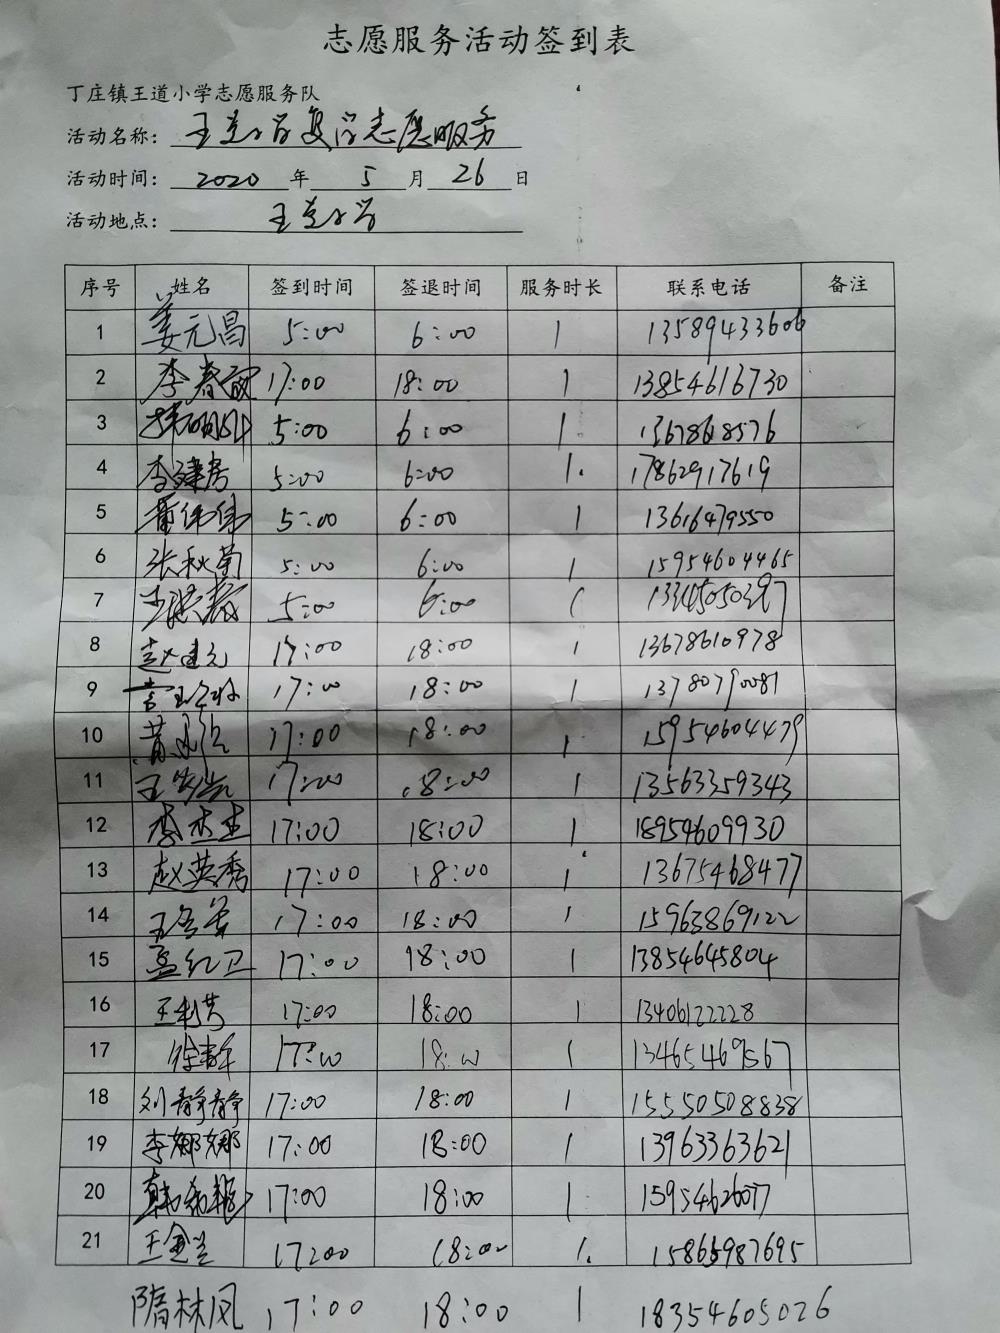 志愿服务活动签到表
丁庄镇王道小学志愿服务队
活动名称: 王道小学复学志愿服务
活动时间: 2020 年 5 月 26 日
活动地点: 王道小学
序号 姓名 签到时间 签退时间 服务时长 联系电话 备注
1 姜元昌 5:00 6:00 1 13589433606
2 李春敏 17:00 18:00 1 13854616730
3 5:00 6:00 1 1367868576
4 李建房 5:00 6:00 1. 17862917619
5 董伟伟 5:00 6:00 1 13616479550
6 张秋菊 5:00 6:00 1 15954604465
7 5:00 6:00 1
8 赵建元 17:00 18:00 1 13678610978
9 17:00 18:00 1 13780790081
10 17:00 18:00 1 15954604479
11 17:00 18:00 1 13563359343
12 李杰杰 17:00 18:00 1 18954609930
13 赵英秀 17:00 18:00 1 13675468477
14 17:00 18:00 1 15963869122
15 孟红卫 17:00 18:00 1 13854645804
16 王利芳 17:00 18:00 1 13406122228
17 17:00 18:00 1 13465469567
18 刘静静 17:00 18:00 1 15550508838
19 李娜娜 17:00 18:00 1 13963363621
20 17:00 18:00 1 15954626077
21 王金兰 17:00 18:00 1. 15865987695
隋林凤 17:00 18:00 1 18354605026